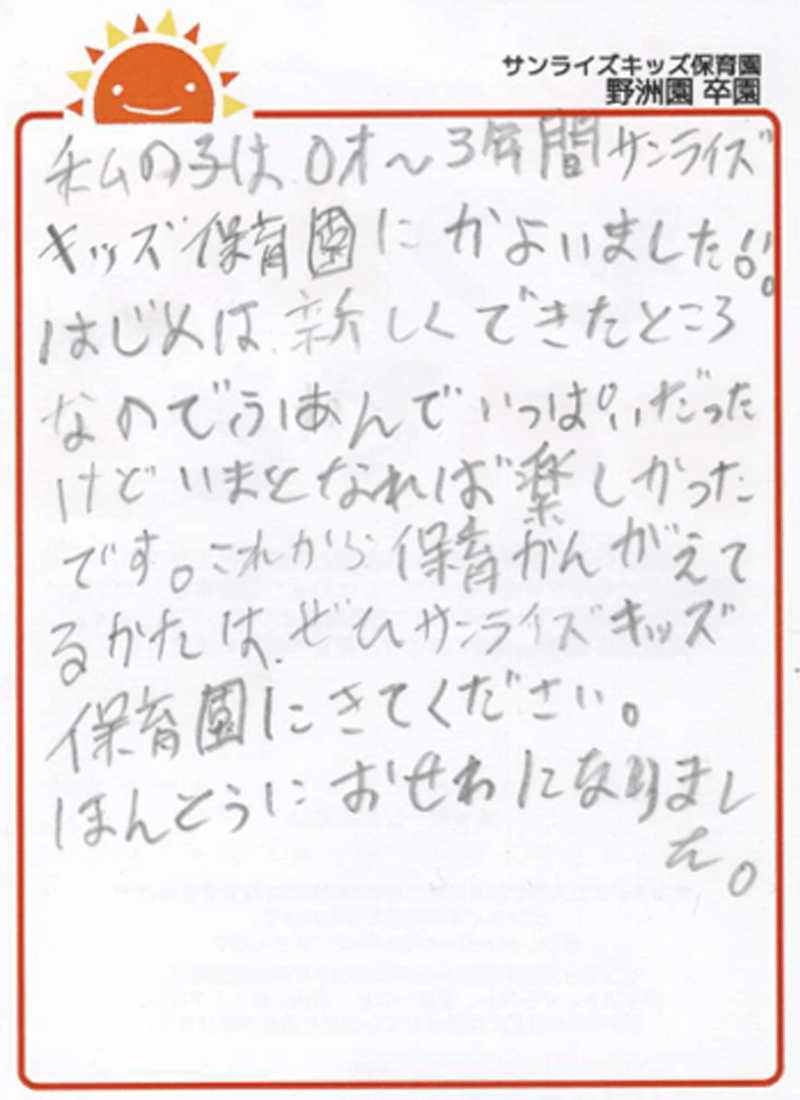 サンライズキッズ保育園
野洲園 卒園
私の子は、0才〜3年間サンライズ
キッズ保育園にかよいました!!。
はじめは、新しくできたところ
なのでふあんでいっぱいだった
けどいまとなれば楽しかった
です。これから保育がんがえて
るかたは、ぜひサンライズキッズ
保育園にきてください。
ほんとうにおせわになりまし
た。